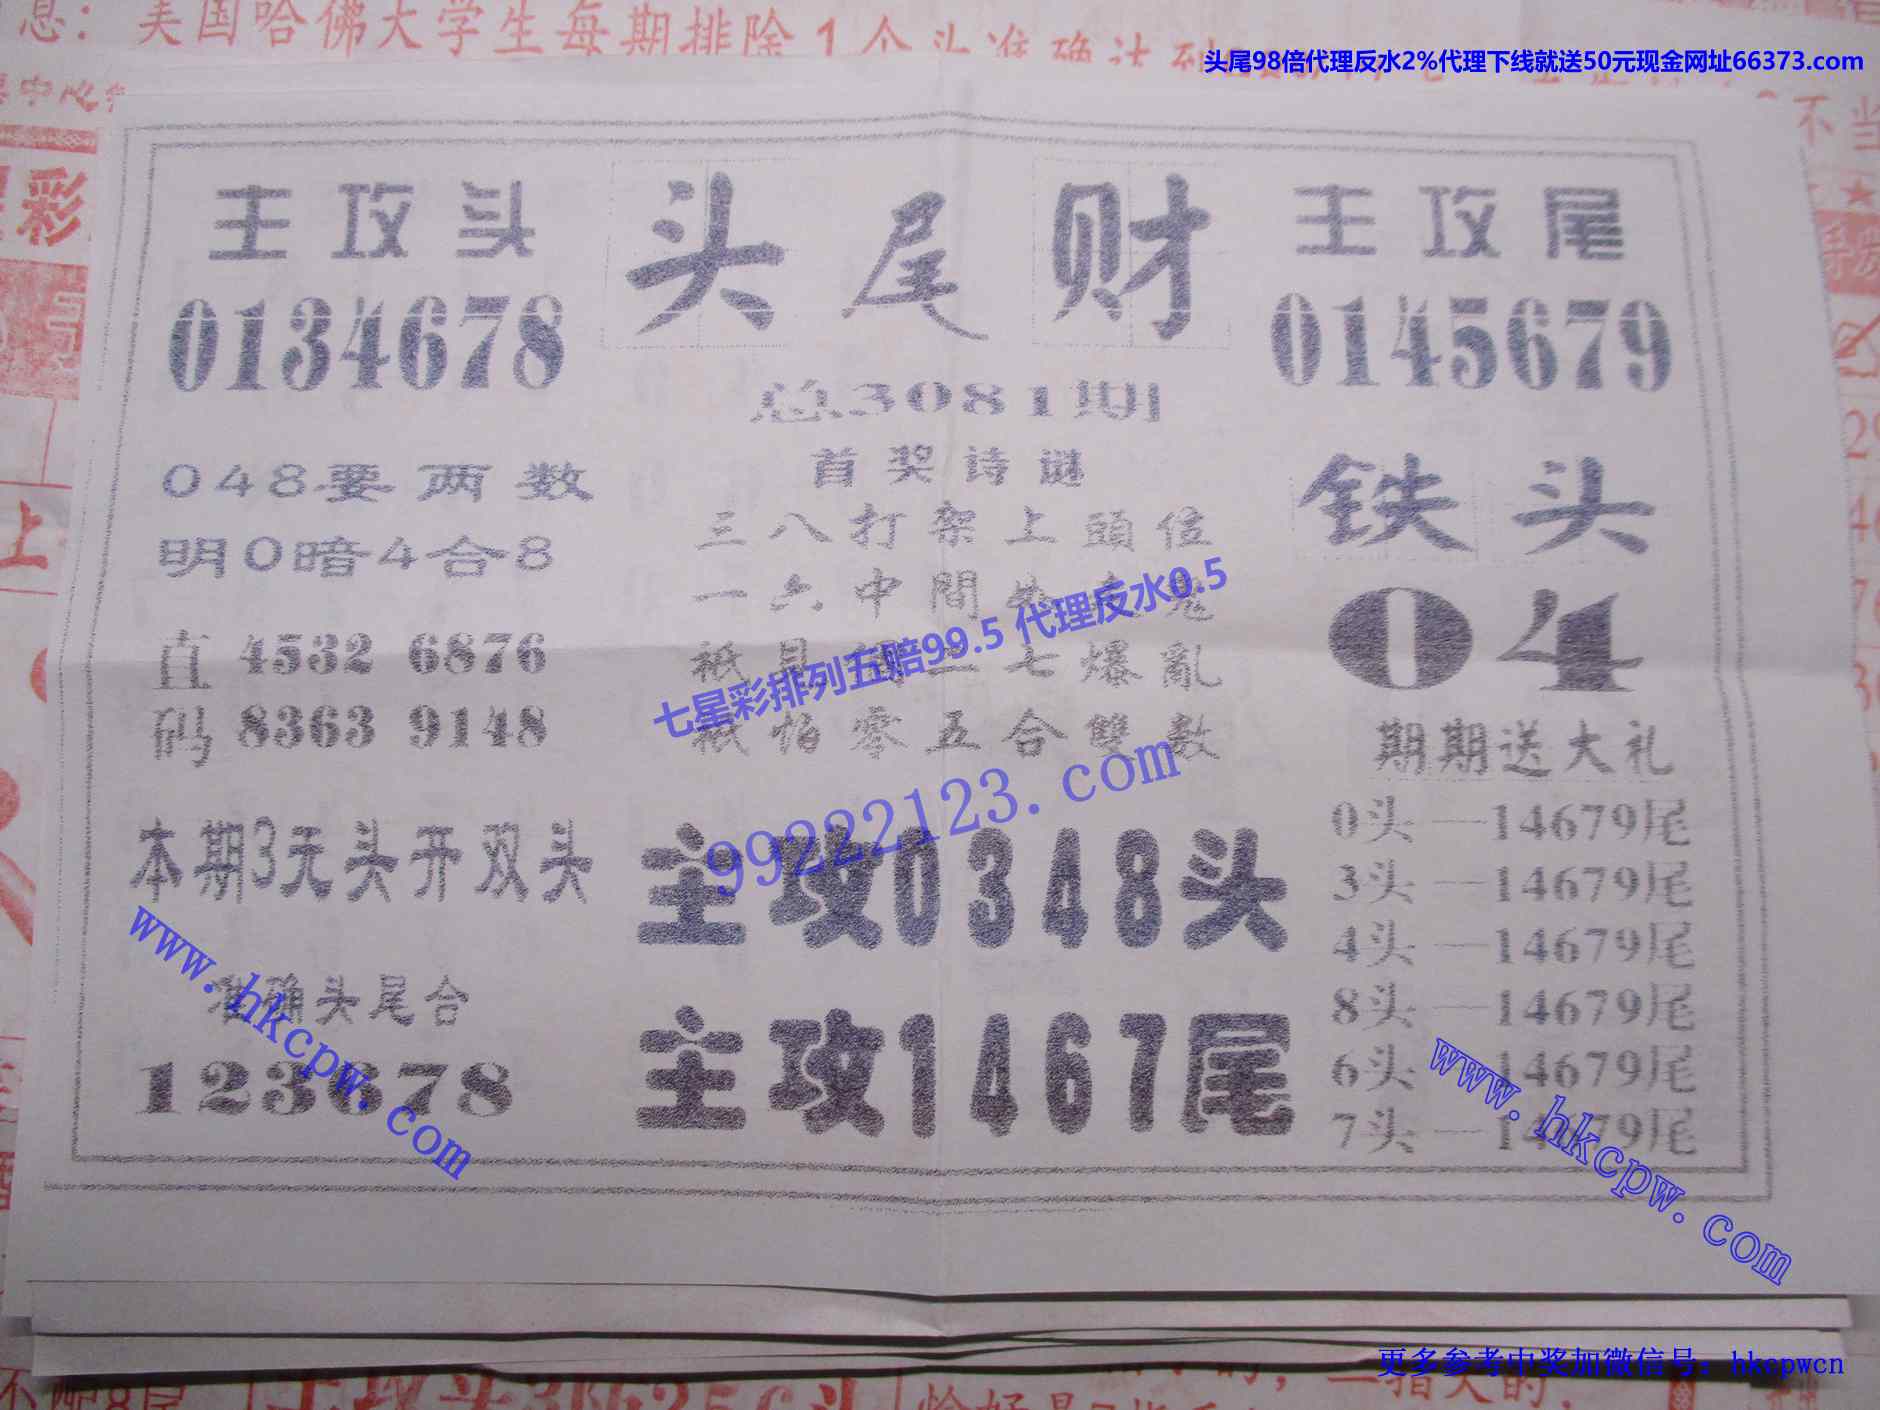 息：美国哈佛大学生每期排除1个头准确达到
头尾98倍代理反水2%代理下线就送50元现金网址66373.com
不当
彩
主攻头
0134678
头尾财
主攻尾
0145679
总3081期
首奖诗谜
三八打架上頭位
一六中間
祇見 二七爆亂
祇怕零五合雙數
七星彩排列五赔99.5 代理反水0.5
99222123.com
048要两数
明0暗4合8
直码
4532 6876
8363 9148
铁头
04
期期送大礼
0头—14679尾
3头—14679尾
4头—14679尾
8头—14679尾
6头—14679尾
7头—14679尾
本期3无头开双头
准确头尾合
123678
主攻0348头
主攻1467尾
www.hkcpw.com
www.hkcpw.com
上
更多参考中奖加微信号：hkcpwcn